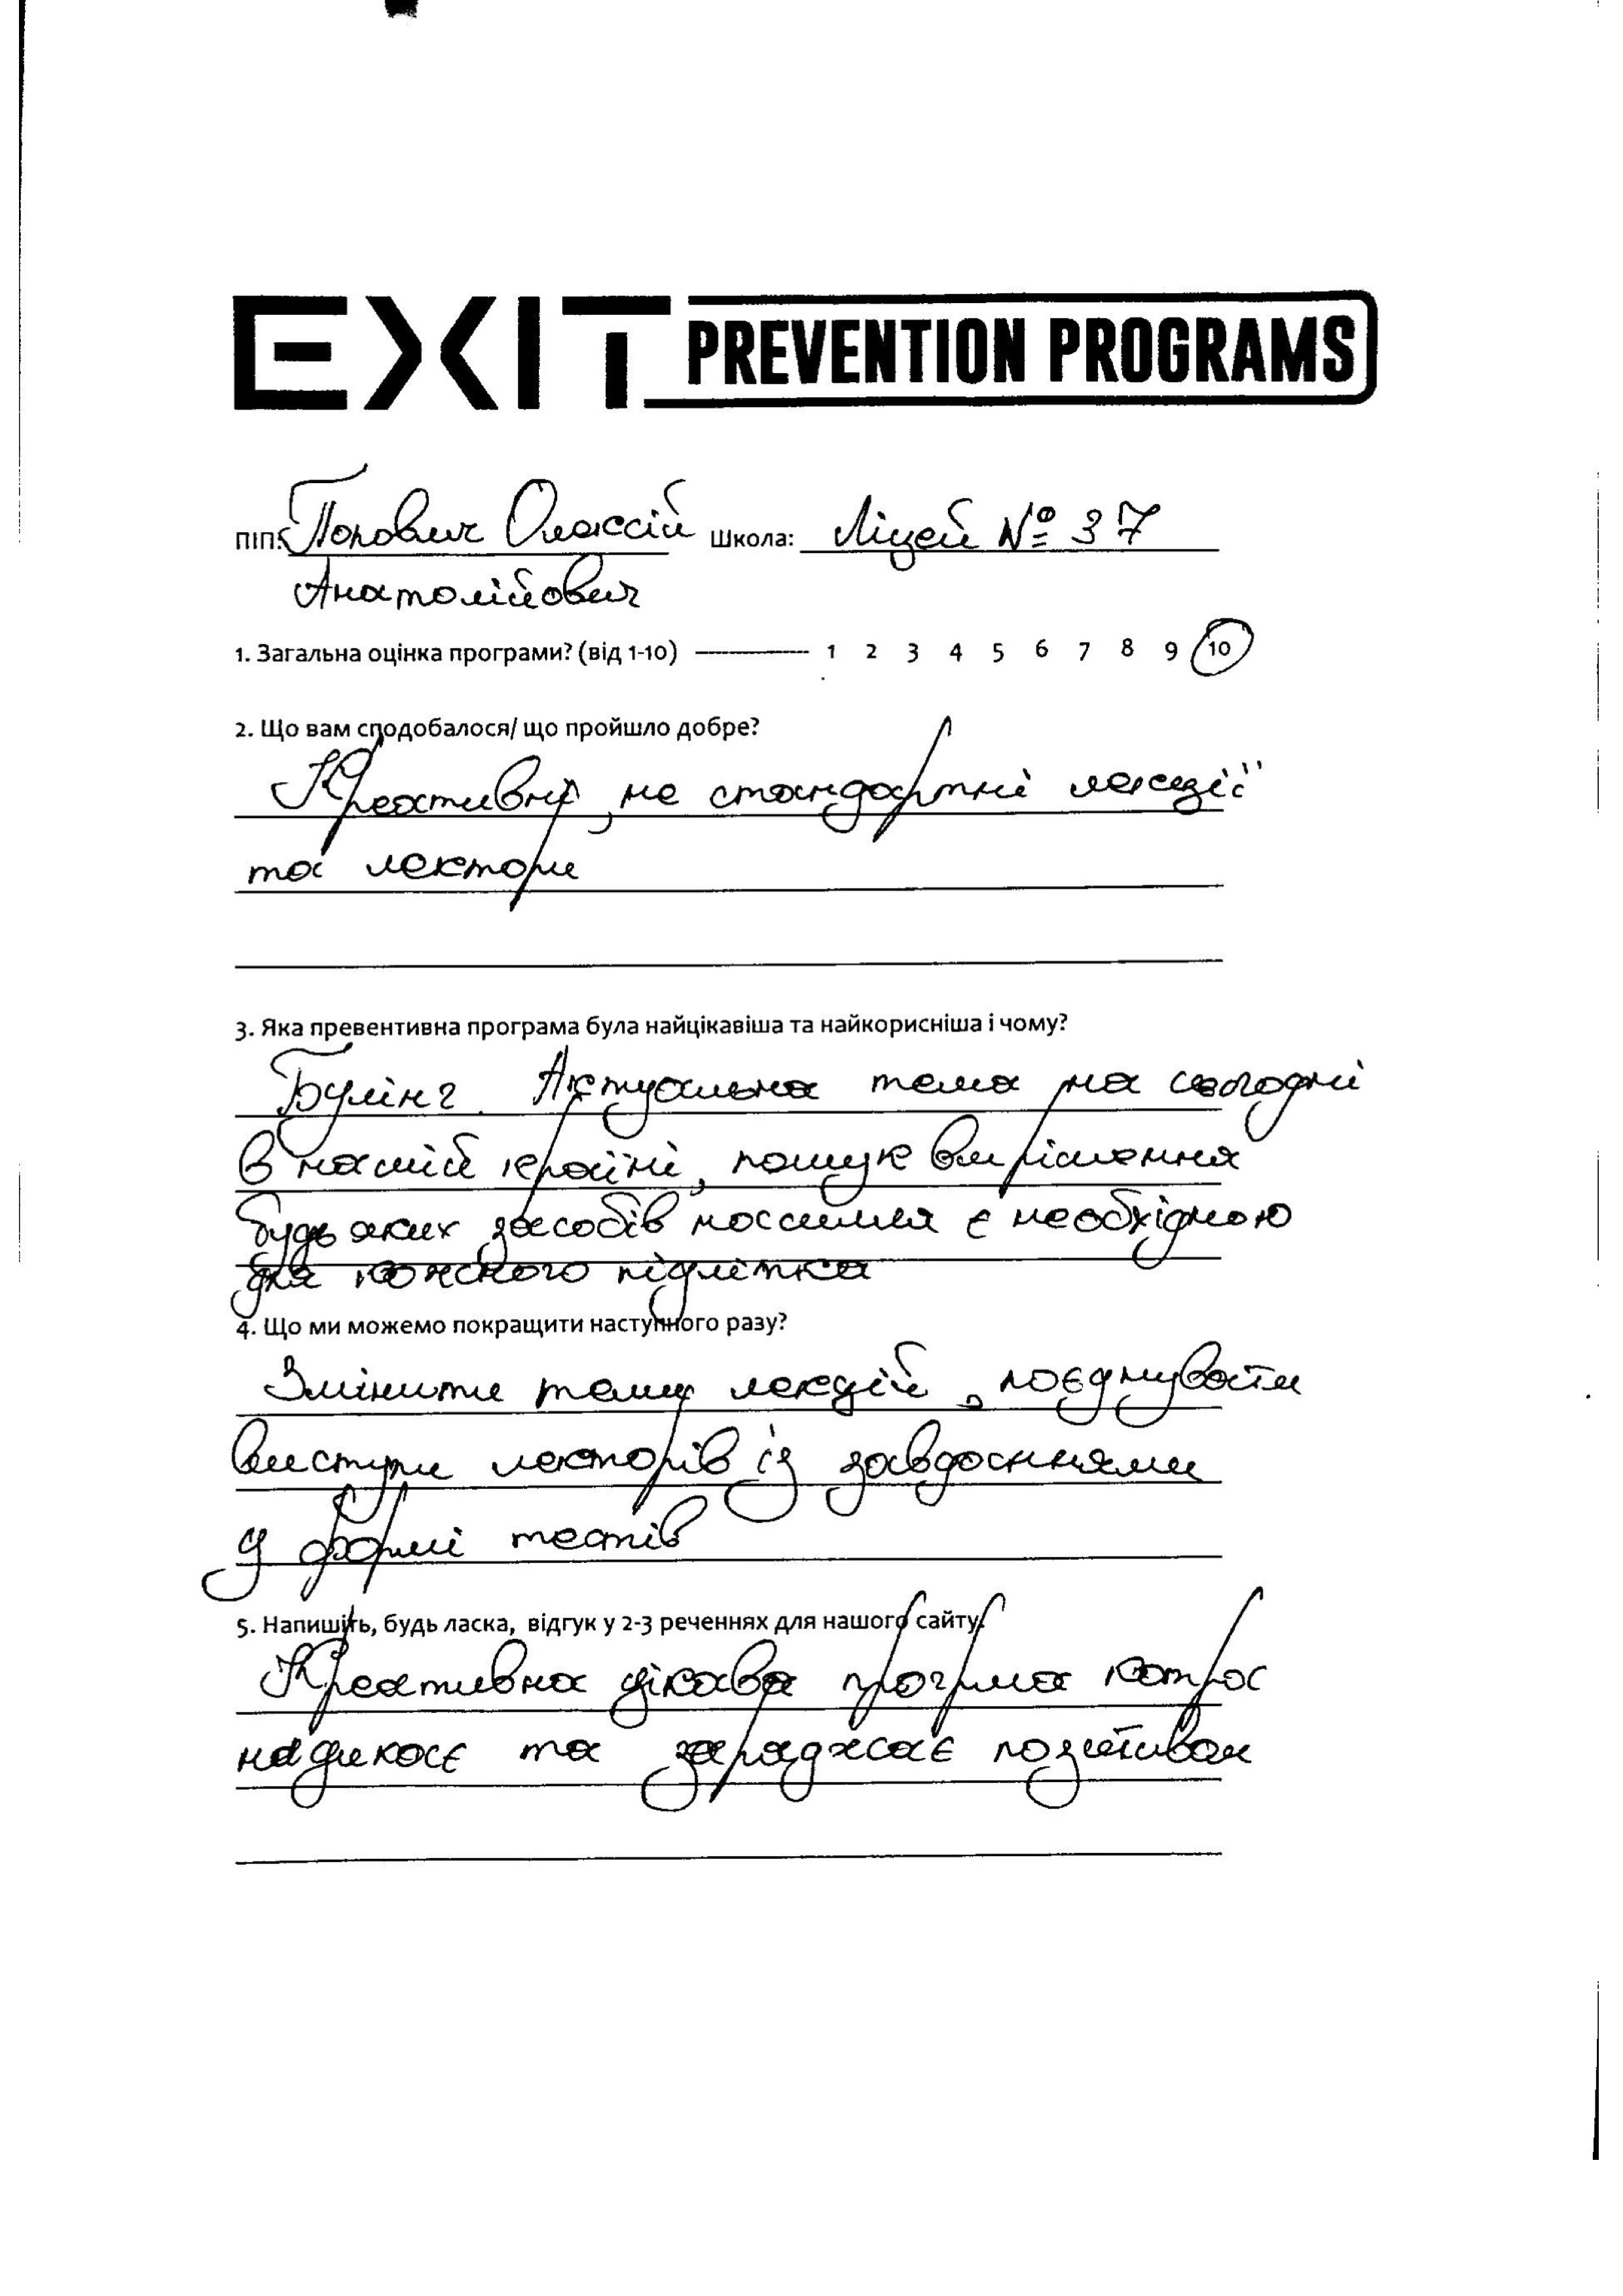 EXIT PREVENTION PROGRAMS
ПІП: Попович Олексій Школа: Ліцей № 37
Анатолійович
1. Загальна оцінка програми? (від 1-10) 1 2 3 4 5 6 7 8 9 10
2. Що вам сподобалося/ що пройшло добре?
Креативні, не стандартні лекції
та лектори
3. Яка превентивна програма була найцікавіша та найкорисніша і чому?
Булінг. Актуальна тема на сьогодні
в нашій країні, пошук вирішення
будь яких засобів насилля є необхідною
для кожного підлітка
4. Що ми можемо покращити наступного разу?
Змінити теми лекцій, поєднувати
виступи лекторів із завданнями
у формі тестів
5. Напишіть, будь ласка, відгук у 2-3 реченнях для нашого сайту.
Креативна цікава програма котра
надихає та заряджає позитивом